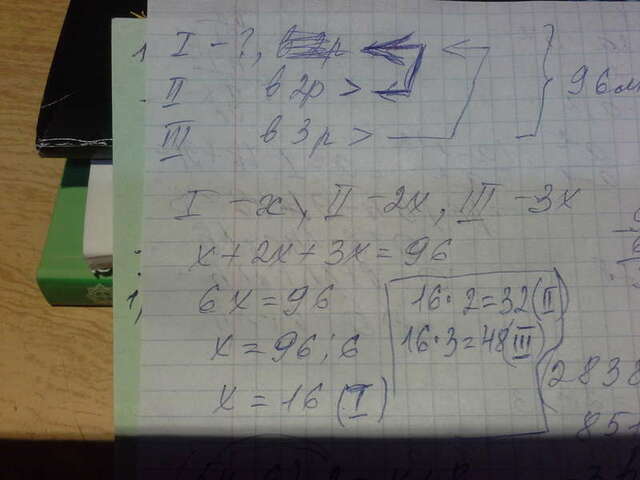 1 I - ?,
II в 2р >
III в 3р > 96
I - x, II - 2x, III - 3x
x + 2x + 3x = 96
1) 6x = 96
x = 96 : 6
x = 16 (I)
16 · 2 = 32 (II)
16 · 3 = 48 (III)
(2838
851